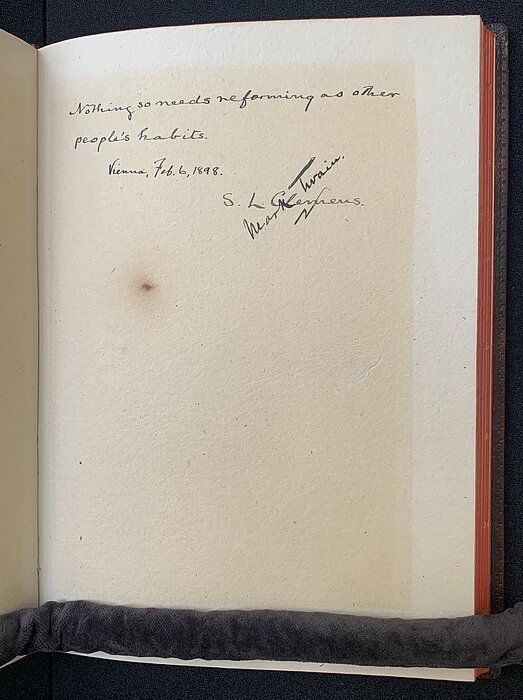 Nothing so needs reforming as other
people's habits.
Vienna, Feb. 6, 1898.
S. L. Clemens.
Mark Twain.